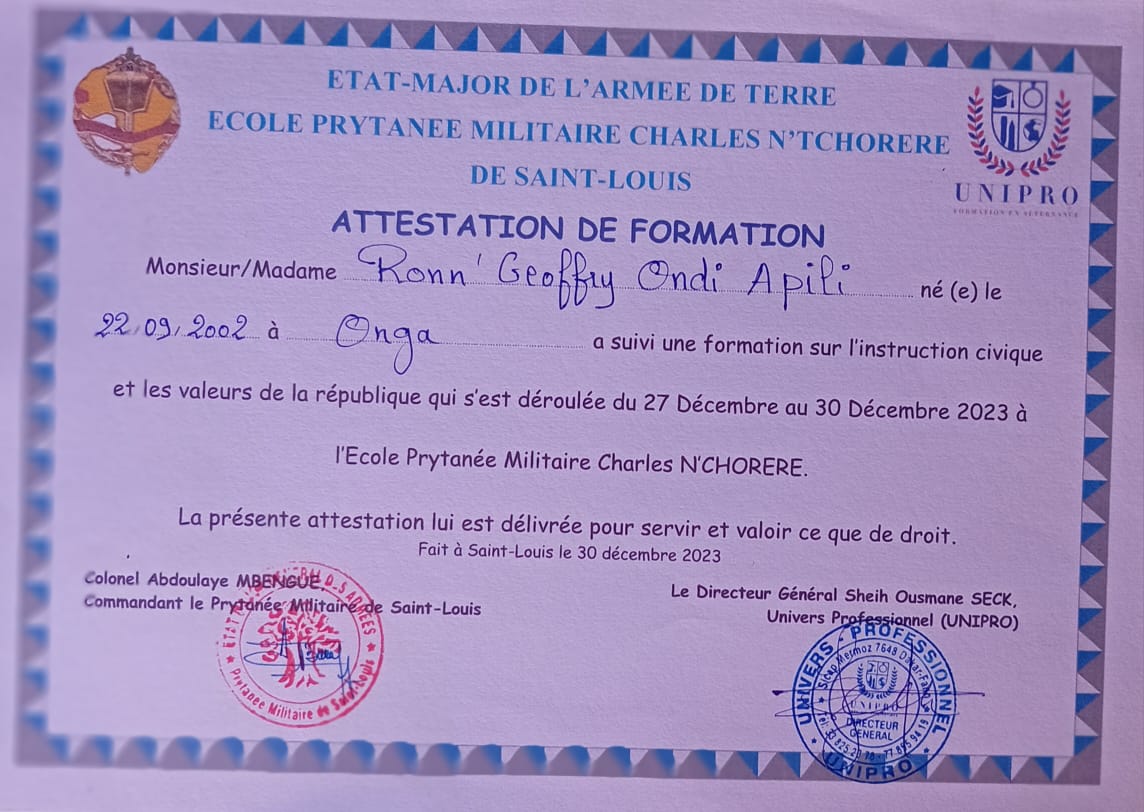 ETAT-MAJOR DE L'ARMEE DE TERRE
ECOLE PRYTANEE MILITAIRE CHARLES N'TCHORERE
DE SAINT-LOUIS
UNIPRO
FORMATION EN ALTERNANCE
ATTESTATION DE FORMATION
Monsieur/Madame Ronn' Geoffry Ondi Apili né (e) le
22.09.2002 à Onga a suivi une formation sur l'instruction civique
et les valeurs de la république qui s'est déroulée du 27 Décembre au 30 Décembre 2023 à
l'Ecole Prytanée Militaire Charles N'CHORERE.
La présente attestation lui est délivrée pour servir et valoir ce que de droit.
Fait à Saint-Louis le 30 décembre 2023
Colonel Abdoulaye MBENGUE,
Commandant le Prytanée Militaire de Saint-Louis
Prytanée Militaire de Saint-Louis
Le Directeur Général Sheih Ousmane SECK,
Univers Professionnel (UNIPRO)
UNIVERS - PROFESSIONNEL
Sicap Mermoz 7648
UNIPRO
DIRECTEUR
GENERAL
UNIPRO